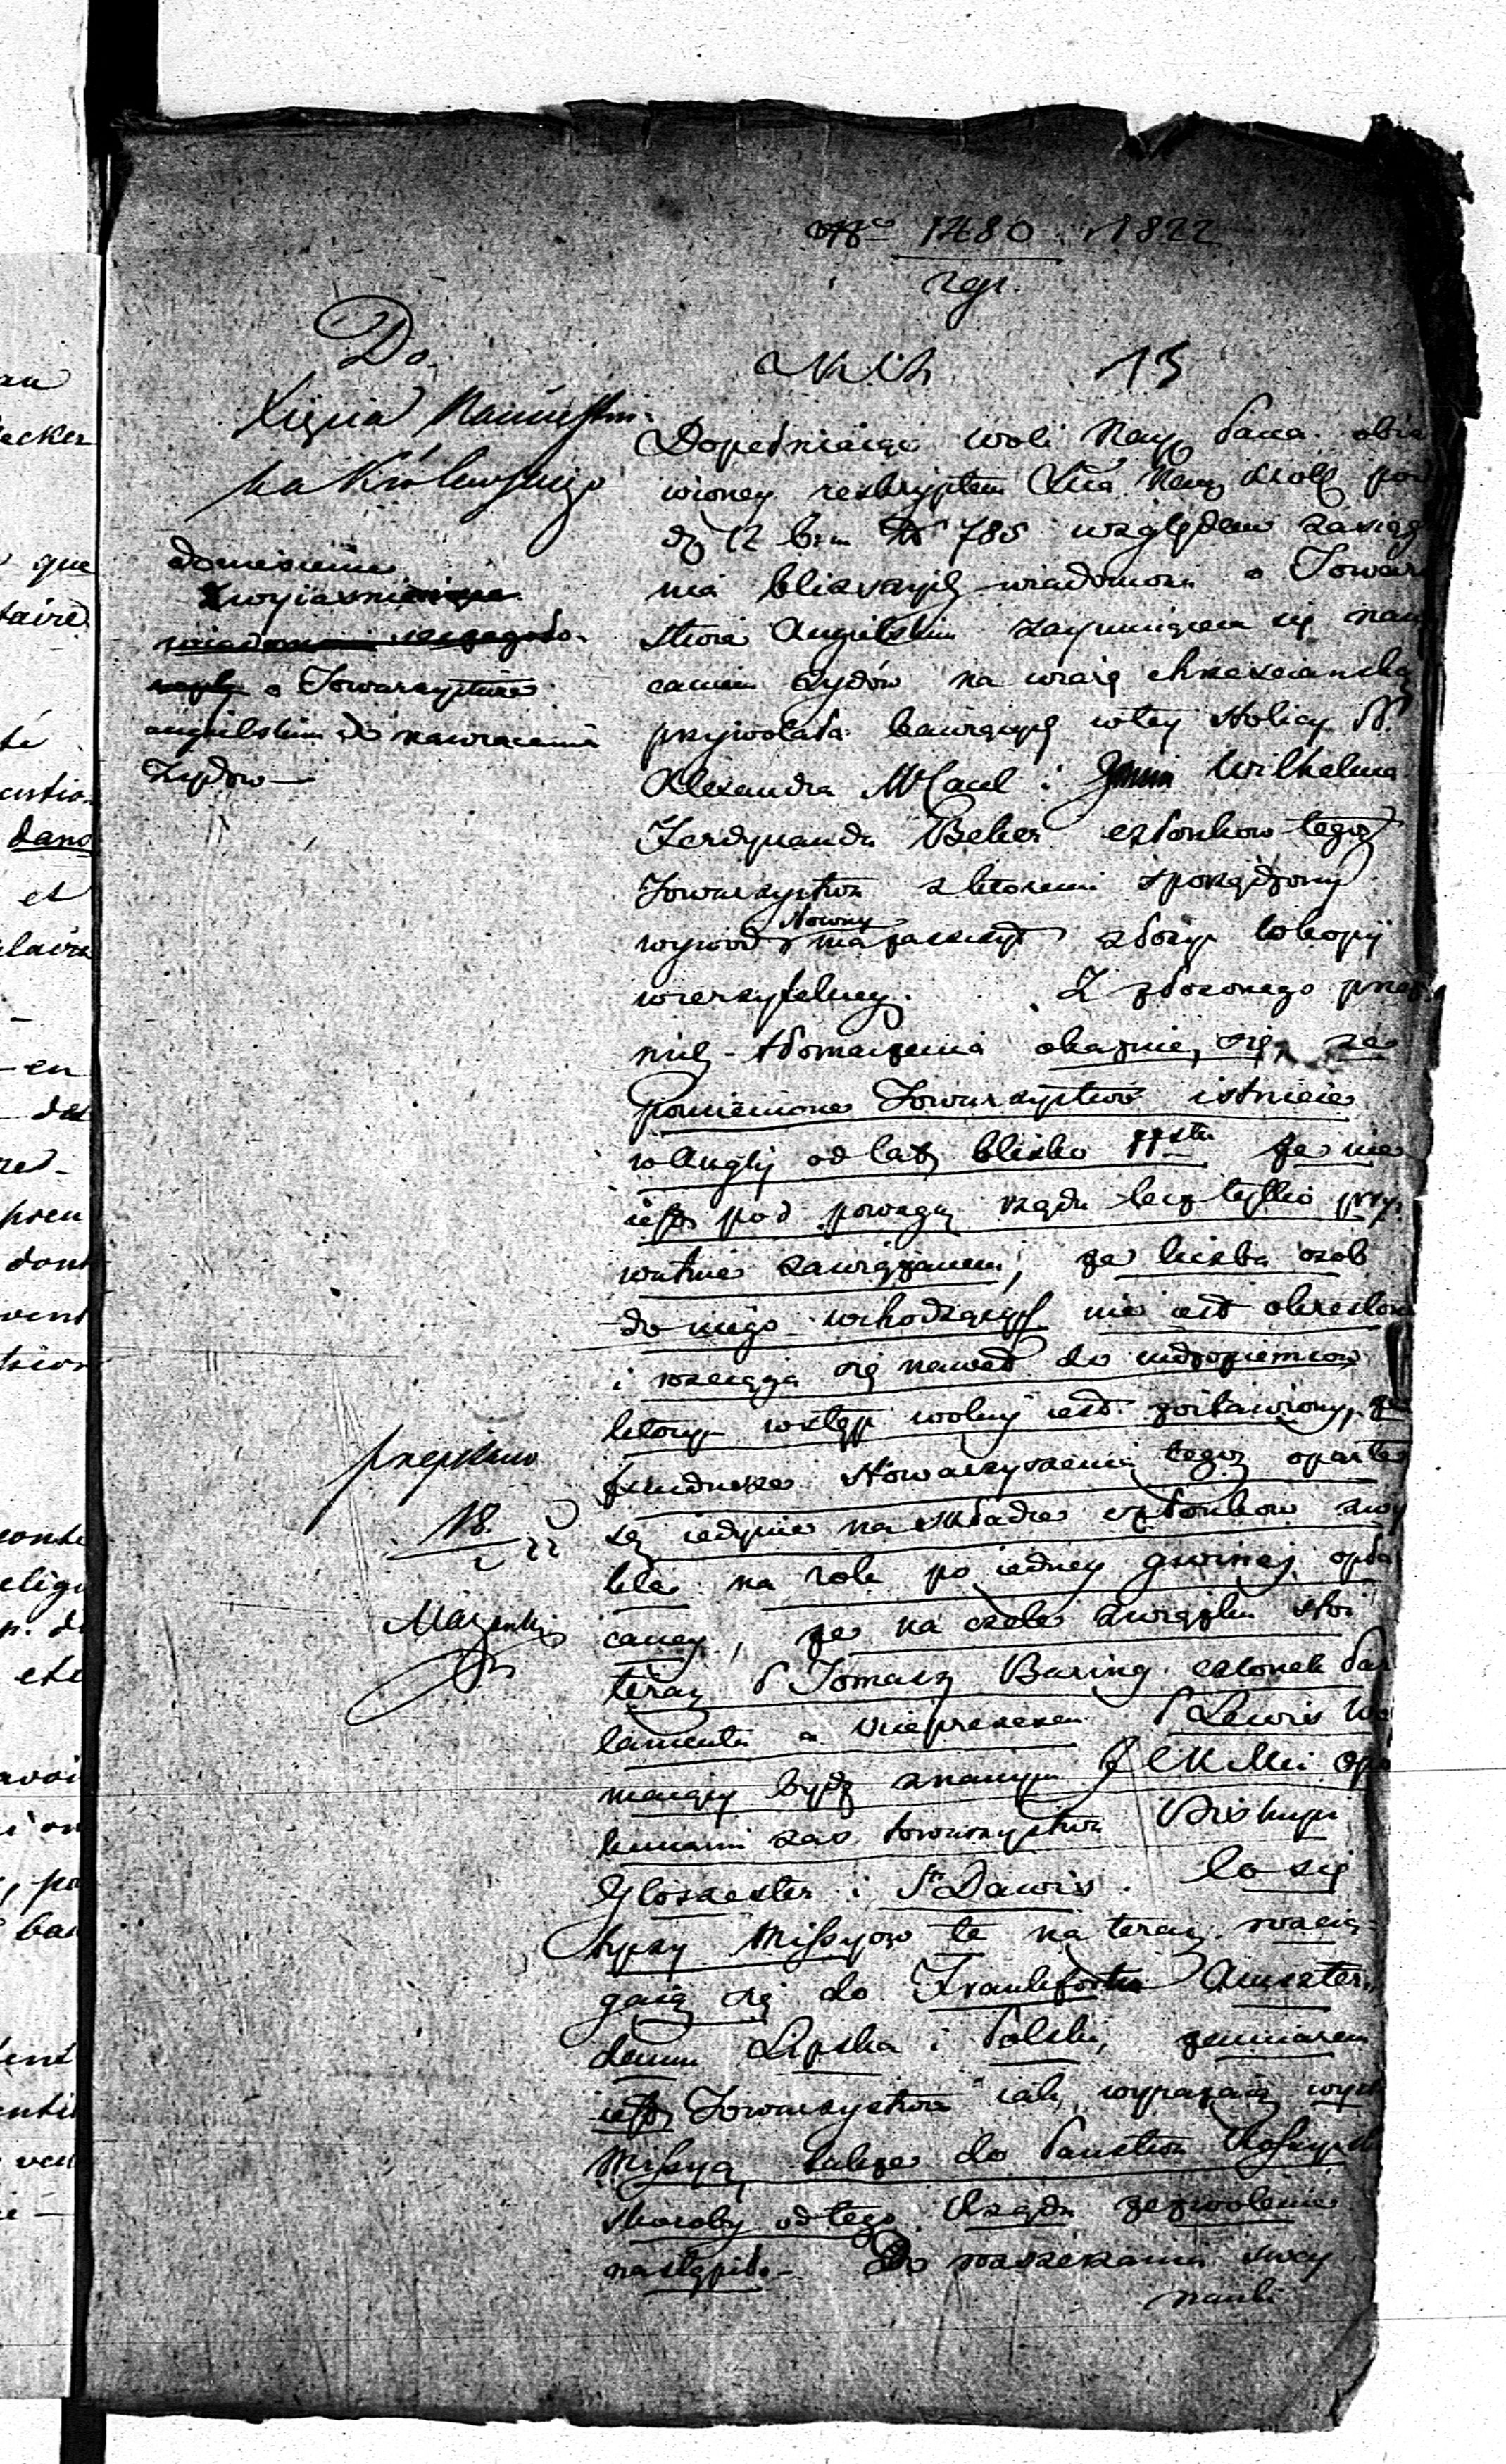 Nro 1480 1822
Do
Xięcia Namiestni-
ka Królewskiego
doniesienie
o Towarzystwie
angielskim do nawracania
Żydów
przepisano
18.
13
Dopełniaiąc woli Nay Pana obia
wioney reskryptem Xcia Nam Król pod
d. 12 b.m. N 785 względem zasiągn
nia bliższych wiadomości o Towarzy
stwie Angielskim zaymuiącem się nawra
caniem Żydów na wiarę chrześciańską
przywołała bawiących w tey Stolicy P.
Alexandra McCaul i Wilhelma
Ferdynanda Beker członków tegoż
Towarzystwa z któremi sporządzony
wywod Słowny ma zaszczyt złożyć w kopij
wierzytelney. Z złożonego przez
nich tłomaczenia okazuie się, że
pomienione Towarzystwo istnieie
w Anglij od lat blisko że nie
iest pod powagą rządu lecz tylko pry-
watnie zawiązanem, że liczba osób
do niego wchodzących nie iest określona
i rozciąga się nawet do cudzoziemców
którym wstęp wolny iest zostawiony, że
fundusze Stowarzyszenia tegoż oparte
są iedynie na składce członków zwy
kle na rok po iedney gwinei opła
caney, że na czele związku stoi
teraz P Tomasz Baring członek Par
lamentu a viceprezesem P Lewis Wa
maiący bydź znanym JCKMci opie
kunami zaś towarzystwa Biskupi
Gloszester i St Dawis. Co się
tyczy Missyów te na teraz rozcią-
gaią się do Frankfortu Amszter-
damu Lipska i Polski, zamiarem
iest Towarzystwa iak wyrażaią wysł
Missyą także do Państwa Rossyisk
skoroby od tego Rządu zezwolenie
nastąpiło. Do rozszerzania swey
nauki